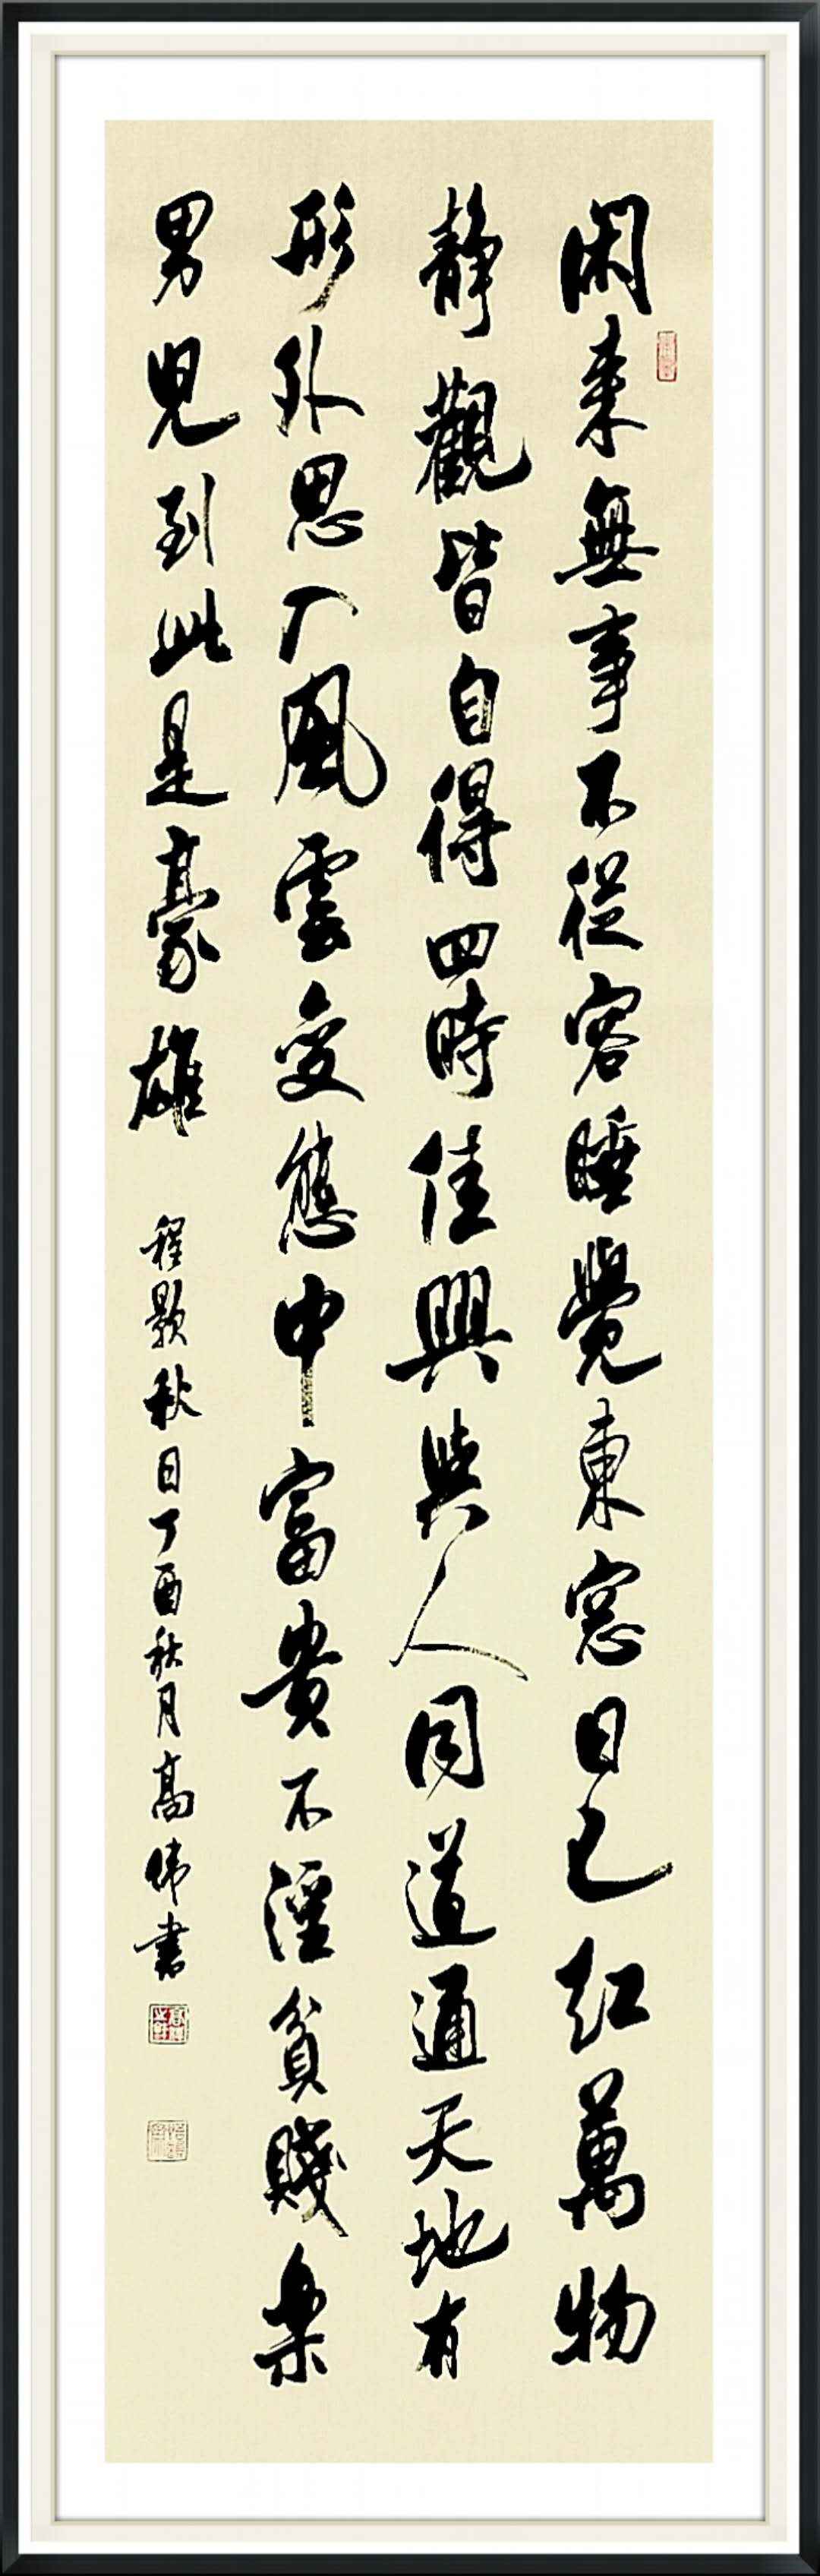 閑来無事不從容睡覺東窓日已紅萬物
靜觀皆自得四時佳興與人同道通天地有
形外思入風雲变態中富貴不淫貧賤樂
男児到此是豪雄
程颢秋日丁酉秋月高偉書